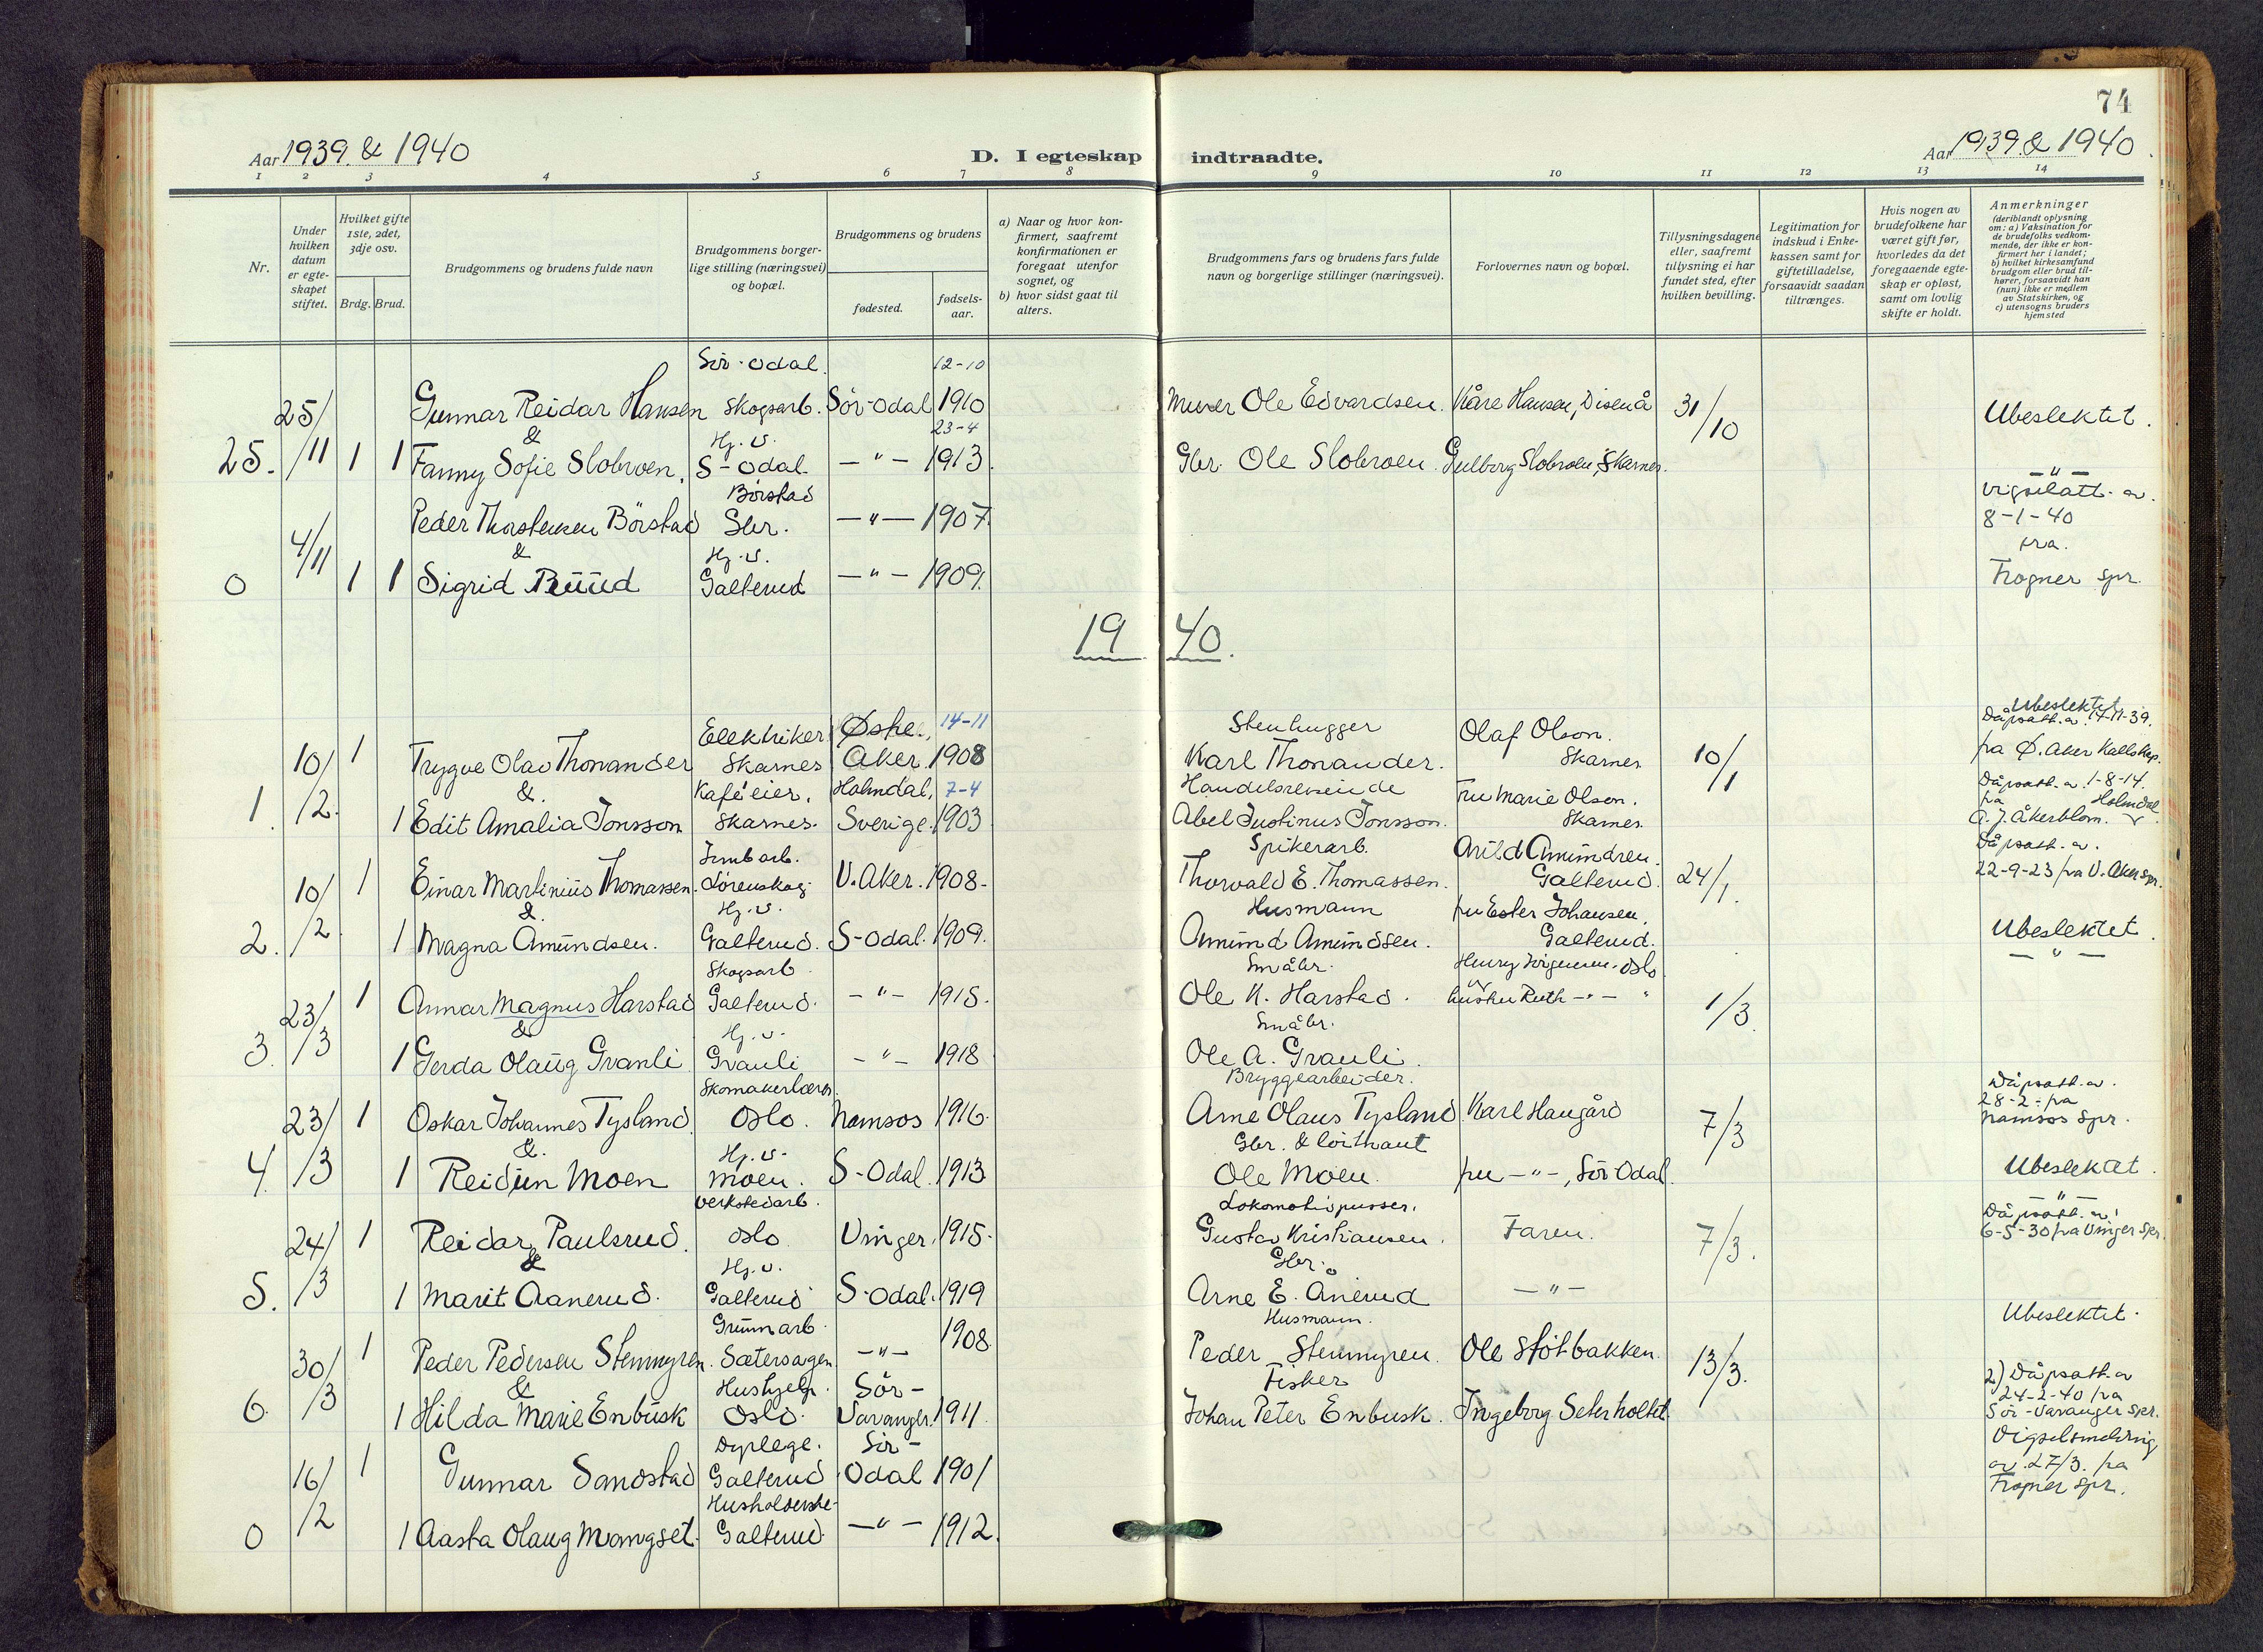 74
Aar 1939. & 1940
D. I egteskap indtraadte.
Aar 1939. & 1940.
1 2 3 4 5 6 7 8 9 10 11 12 13 14
Nr.
Under hvilken datum er egteskapet stiftet.
Hvilket gifte 1ste, 2det, 3dje osv.
Brdg. Brud.
Brudgommens og brudens fulde navn
Brudgommens borgerlige stilling (næringsvei) og bopæl.
Brudgommens og brudens
fødested.
fødselsaar.
a) Naar og hvor konfirmert, saafremt konfirmationen er foregaat utenfor sognet, og
b) hvor sidst gaat til alters.
Brudgommens fars og brudens fars fulde navn og borgerlige stillinger (næringsvei).
Forlovernes navn og bopæl.
Tillysningsdagene eller, saafremt tillysning ei har fundet sted, efter hvilken bevilling.
Legitimation for indskud i Enkekassen samt for giftetilladelse, forsaavidt saadan tiltrænges.
Hvis nogen av brudefolkene har været gift før, hvorledes da det foregaaende egteskap er opløst, samt om lovlig skifte er holdt.
Anmerkninger (deriblandt oplysning om: a) Vaksination for de brudefolks vedkommende, der ikke er konfirmert her i landet; b) hvilket kirkesamfund brudgom eller brud tilhører, forsaavidt han (hun) ikke er medlem av Statskirken, og c) utensogns bruders hjemsted
Sör-Odal. 12-10
25/11 Gunnar Reidar Hansen Skogsarb. Sör-Odal 1910 Murer Ole Edvardsen. Kåre Hansen, Disenå 31/10 Ubeslektet.
& Hj. v. 23-4
25. 1 1 Fanny Sofie Slobroen. S-Odal. -"- 1913. Gbr. Ole Slobroen. Gulborg Slobroen, Skarnes. -"-
Börstad
4/11 Peder Thorstensen Börstad Gbr. -"- 1907. 8-1-40
& Hj. v. fra
0 1 1 Sigrid Ruud Galterud -"- 1909. Frogner spr.
1940.
Elektriker Østre 14-11 Stenhugger Olaf Olson. Ubeslektet
Dåpsatt. av 14-11-39.
10/2 1 Trygve Olav Thonander Skarnes Aker. 1908 Karl Thonander. Skarnes 10/1 fra Ø. Aker
&. Kaféeier. Holmdal, 7-4 Handelsreisende Fru Marie Olson. Dåpsatt. av 1-8-14.
fra Holmdal
1. 1 Edit Amalia Jonsson Skarnes. Sverige. 1903 Abel Justinus Jonsson. Skarnes. A. J. Åkerblom.
Jernbarb. Spikerarb. Arild Amundsen. Dåpsatt. av.
10/2 1 Einar Martinius Thomassen. Lörenskog. V. Aker. 1908. Thorvald E. Thomassen. Galterud. 24/1. 22-9-23 fra V. Aker spr.
&. Hj. v. Husmann fru Ester Johansen.
2. 1 Magna Amundsen. Galterud. S-Odal. 1909. Amund Amundsen. Galterud. Ubeslektet.
Skogsarb. Småbr. Henry Jörgensen. Oslo. -"-
23/3 1 Annar Magnus Harstad Galterud. -"- 1915. Ole K. Harstad. hustru Ruth -"- " 1/3.
& Hj. v. Småbr.
3. 1 Gerda Olaug Granli Granli -"- 1918 Ole A. Granli.
Skomakerlærer. Bryggearbeider. Dåpsatt. av.
23/3 1 Oskar Johannes Tysland. Oslo. Namsos 1916. Arne Olaus Tysland. Karl Haugård 7/3 28-2. fra
Namsos spr.
&. Hj. v. Gbr. & löitnant
4. 1 Reidun Moen Moen. S-Odal. 1913 Ole Moen. fru -"-, Sör Odal. Ubeslektet.
Verkstedarb. Lokomotivpusser. -"-
Dåpsatt. av.
24/3 1 Reidar Paulsrud. Oslo. Vinger. 1915. Gustav Kristiansen. Faren. 7/3. 6-5-30 fra Vinger spr.
& Hj. v. Gbr.
5. 1 Marit Aanerud. Galterud S-Odal. 1919 Arne E. Ånerud -"-
Grunnarb. Husmann. Ubeslektet.
30/3 1 Peder Pedersen Stenmyren. Sætersagen. -"- 1908 Peder Stenmyren. Ole Stötbakken. 13/3.
& Hushjelp. Sör- Fisker 2) Dåpsatt. av
24-2-40 fra
6. 1 Hilda Marie Enbusk Oslo. Varanger. 1911. Johan Peter Enbusk. Ingeborg Seterholtet. Sör-Varanger spr.
Dyrlege. Sör- Vigselsmelding
16/2 1 Gunnar Sandstad Galterud Odal 1901 av 27/3. fra
Husholderske Frogner spr.
0 1 Aasta Olaug Mangset. Galterud -"- 1912.